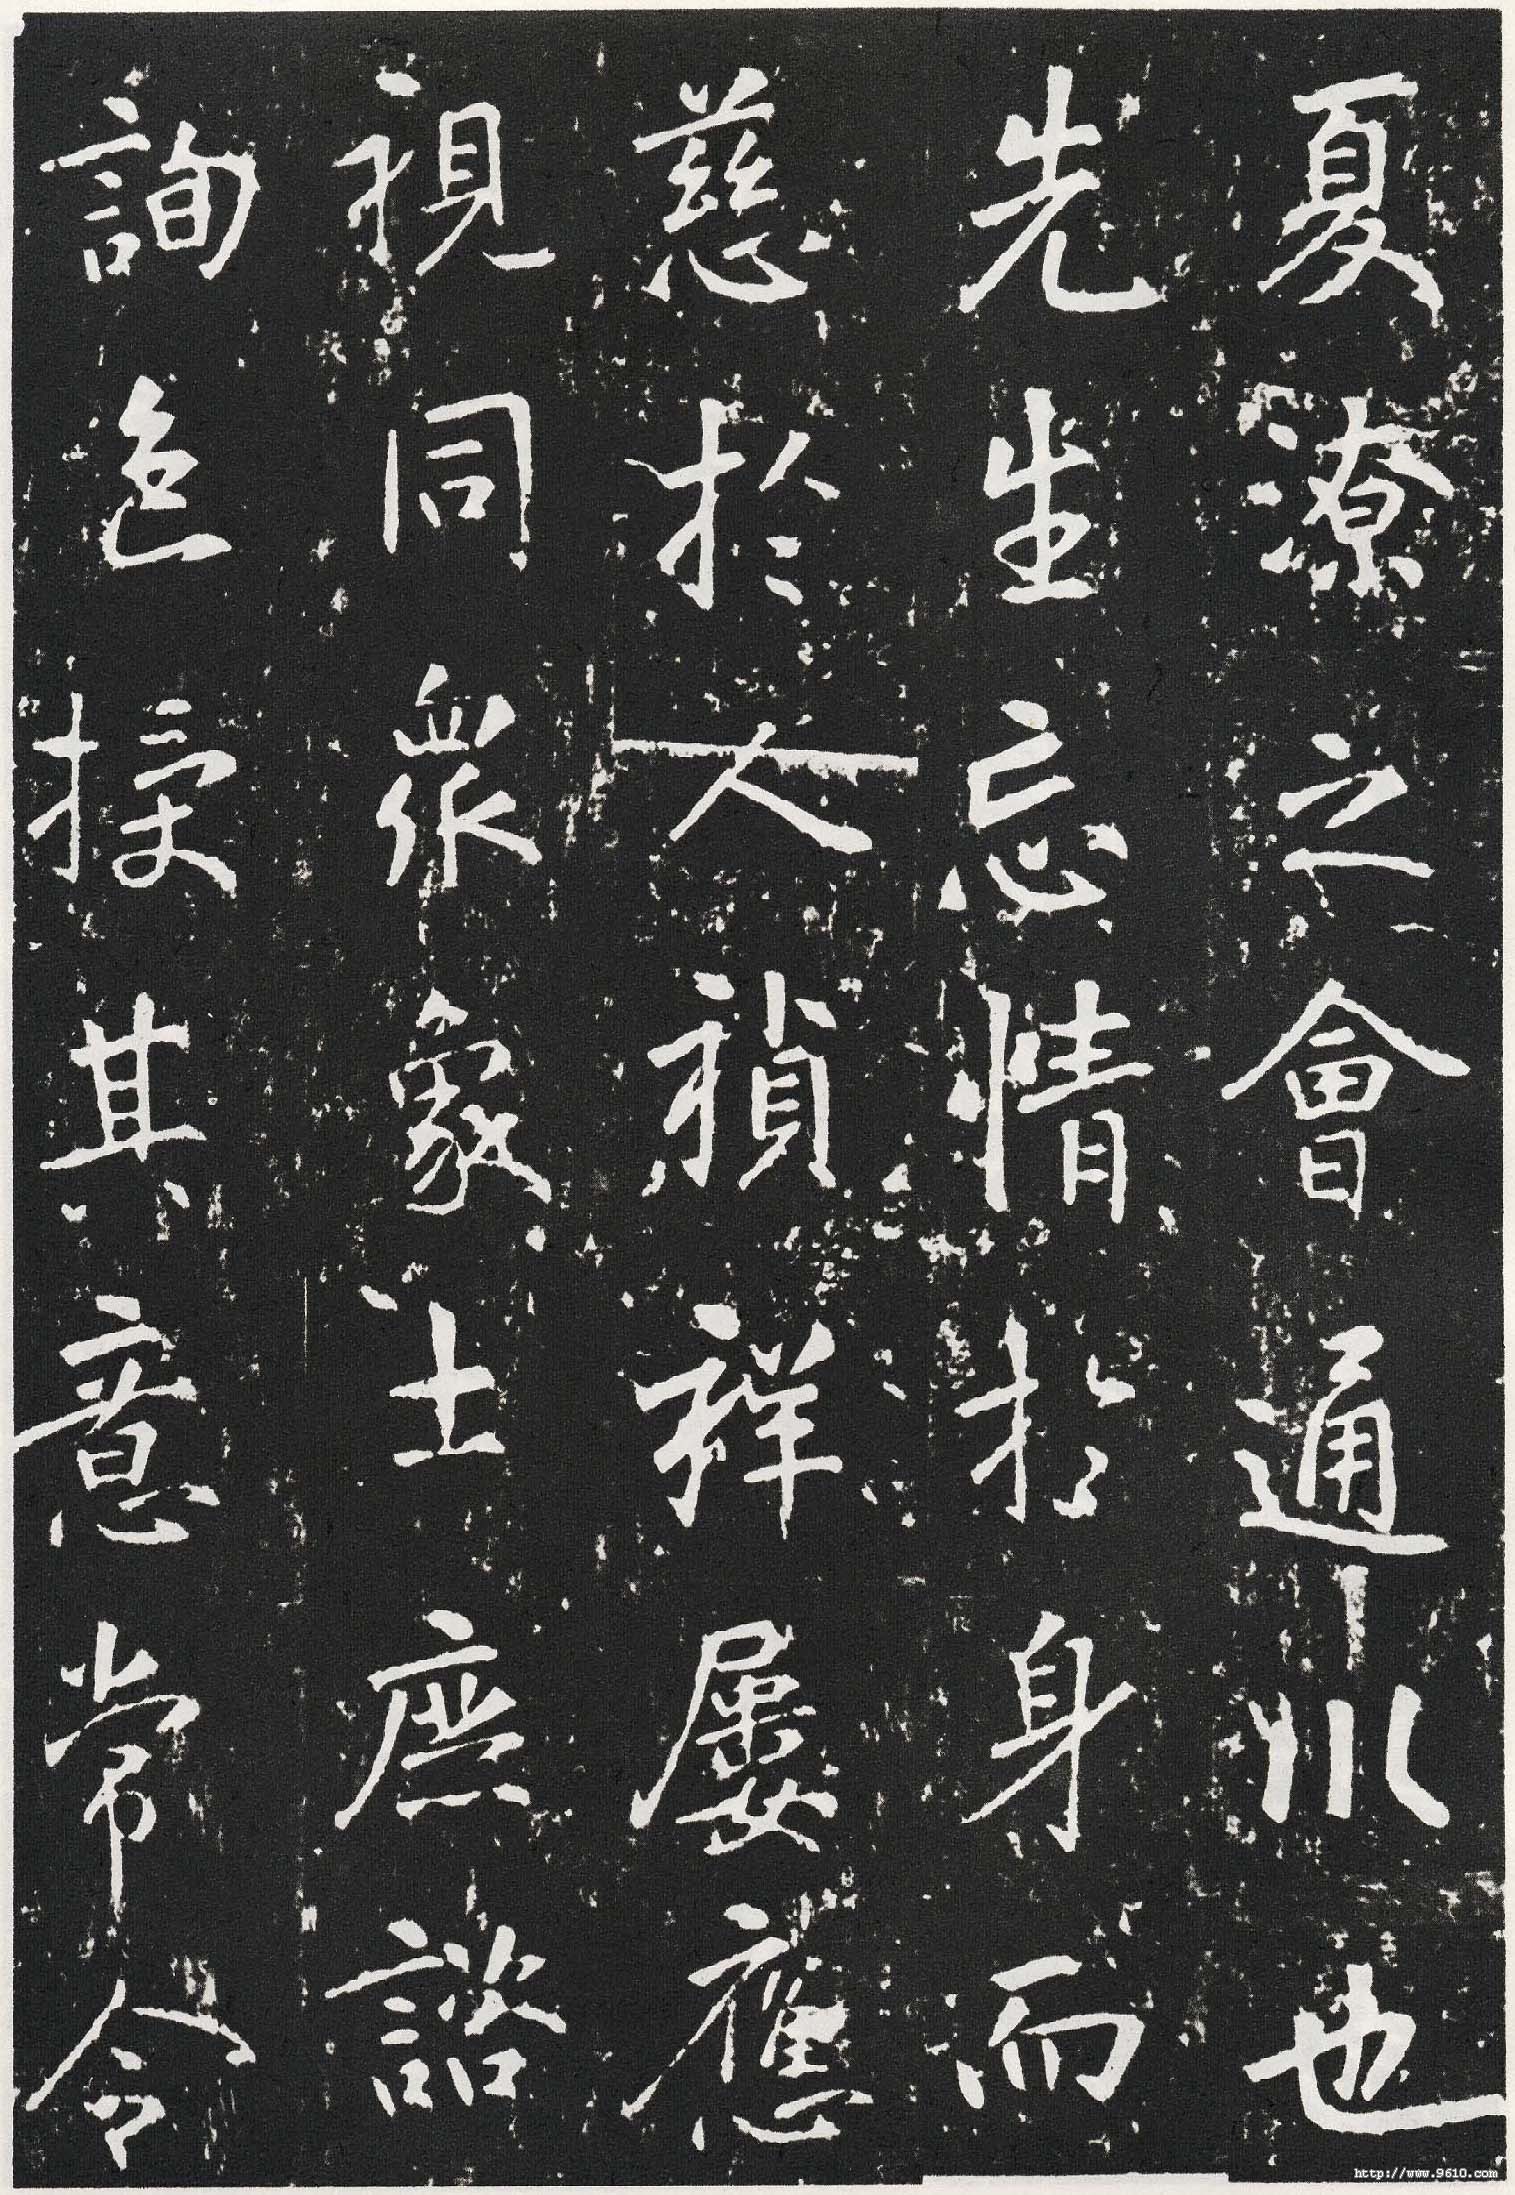 夏潦之會通川也
先生忘情於身而
慈於人禎祥屢應
視同衆象士庶諮
詢色授其意常令
http://www.9610.com